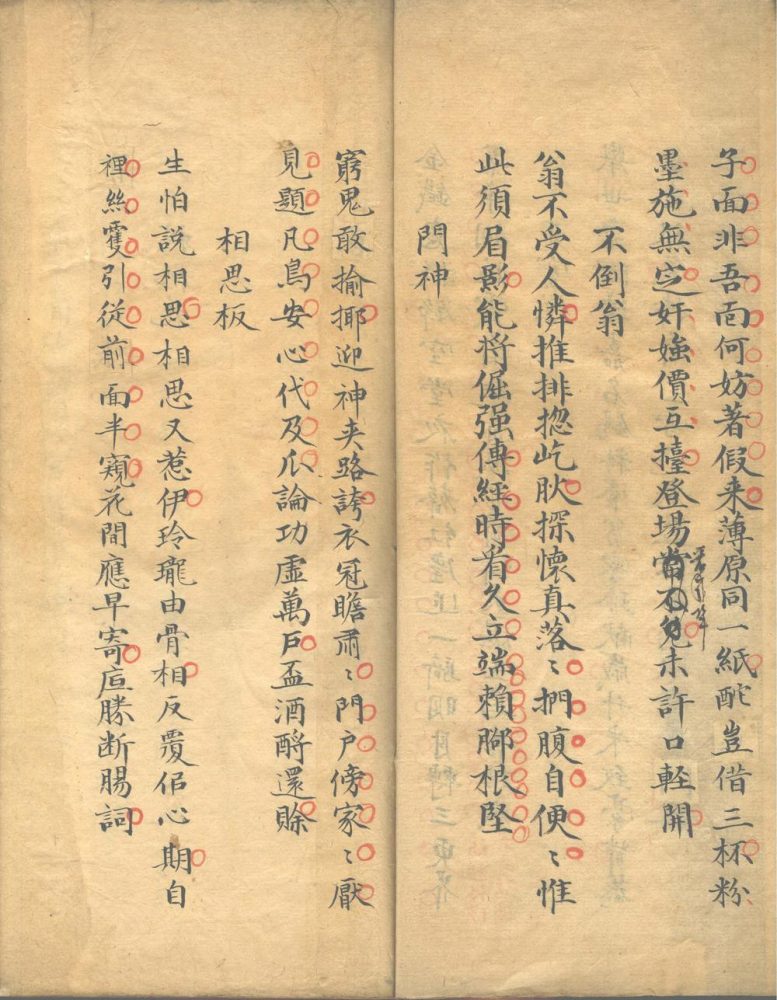 子面非吾面何妨著假来薄原同一紙酡豈借三杯粉
墨施無定妍媸價互擡登場當不免未許口輕開
不倒翁
翁不受人憐推排揔屹肰探懷真落〻捫腹自便〻惟
此須眉影能将倔强傳經時看久立端賴腳根堅
門神
窮鬼敢揄揶迎神夾路誇衣冠瞻肅〻門户傍家〻厭
見題凡鳥安心代及瓜論功虛萬户盃酒酹還賒
相思板
生怕説相思相思又惹伊玲瓏由骨相反覆佀心期自
裡絲雙引從前面半窺花間應早寄底勝断腸詞